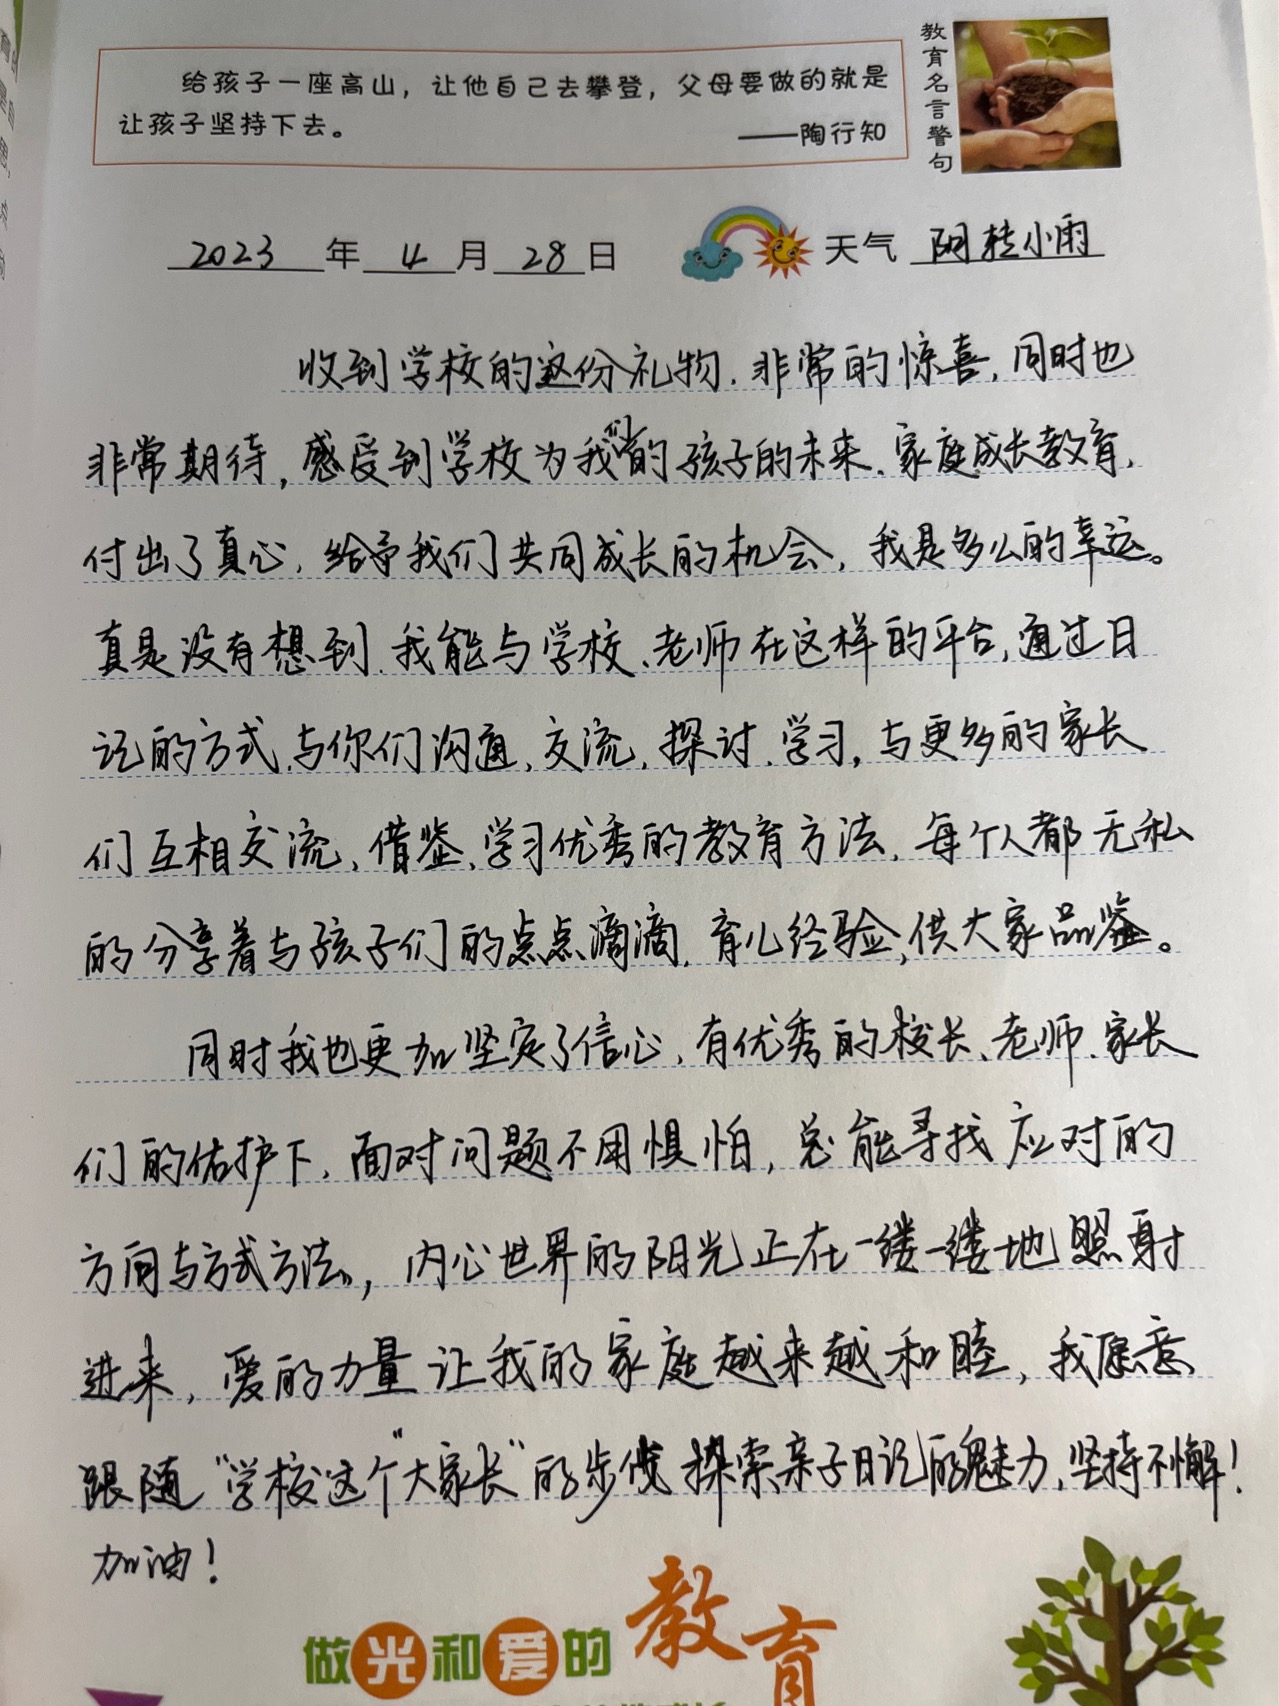 给孩子一座高山，让他自己去攀登，父母要做的就是
让孩子坚持下去。
——陶行知
教育名言警句
2023年4月28日
天气 阴转小雨
收到学校的这份礼物，非常的惊喜，同时也
非常期待，感受到学校为我们的孩子的未来、家庭成长教育，
付出了真心，给予我们共同成长的机会，我是多么的幸运。
真是没有想到，我能与学校、老师在这样的平台，通过日
记的方式，与你们沟通，交流，探讨，学习，与更多的家长
们互相交流，借鉴，学习优秀的教育方法，每个人都无私
的分享着与孩子们的点点滴滴，育儿经验，供大家品鉴。
同时我也更加坚定了信心，有优秀的校长、老师、家长
们的佑护下，面对问题不用惧怕，总能寻找应对的
方向与方式方法，内心世界的阳光正在一缕一缕地照射
进来，爱的力量让我的家庭越来越和睦，我愿意
跟随“学校这个“大家长”的步伐 探索亲子日记的魅力，坚持不懈！
加油！
做光和爱的教育